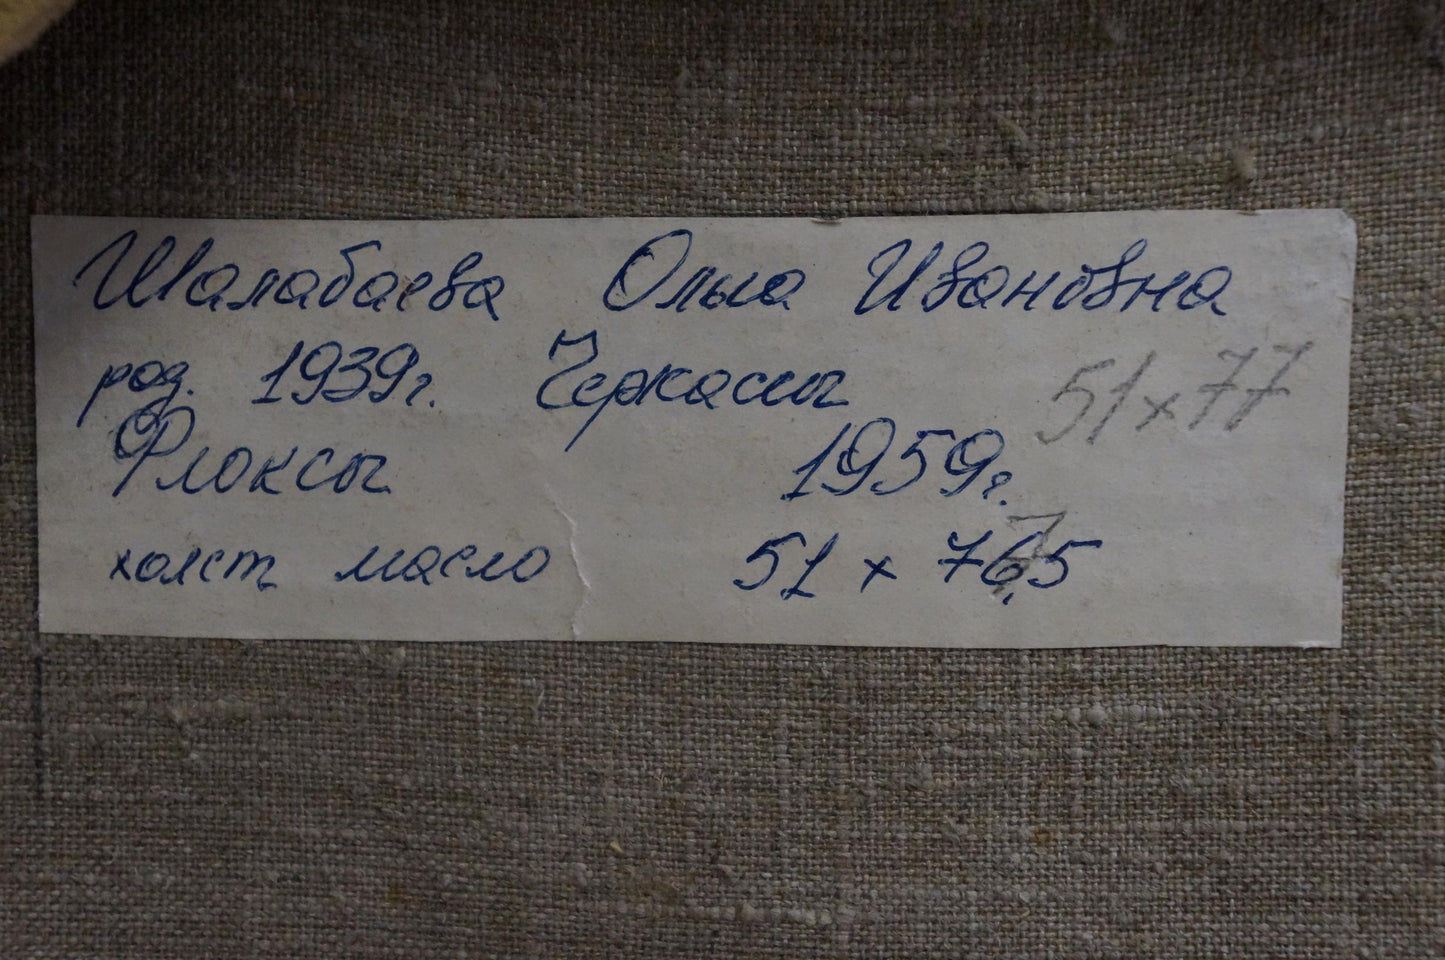 Шалабаева Ольга Ивановна
род. 1939г. Черкассы
51х77
Флоксы 1959г.
холст масло 51 х 76,5
7